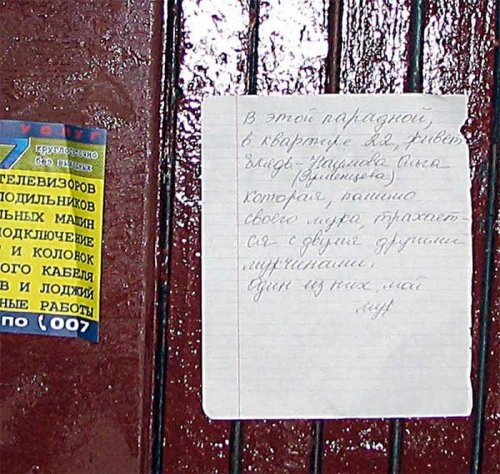 услуг
7
круглосуточно
без выходных
ТЕЛЕВИЗОРОВ
ЛОДИЛЬНИКОВ
ЛЬНЫХ МАШИН
ПОДКЛЮЧЕНИЕ
Т И КОЛОНОК
ОГО КАБЕЛЯ
В И ЛОДЖИЙ
НЫЕ РАБОТЫ
ПО (007
В этой парадной,
в квартире 22, живёт
блядь - Наумова Ольга
которая, помимо
своего мужа, трахает-
ся с двумя другими
мужчинами.
Один из них, мой
муж